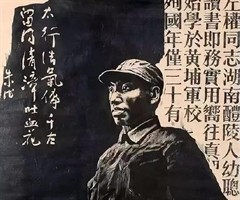 左權同志湖南醴陵人幼聰
讀書即務實用嚮往真
始學於黃埔軍校
國年僅三十有
太行浩氣傳千古
留得清漳吐血花
朱德